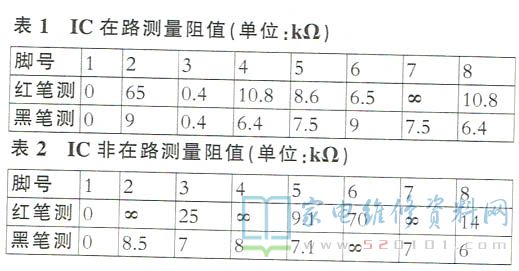 表1 IC在路测量阻值(单位:kΩ)
脚号 1 2 3 4 5 6 7 8
红笔测 0 65 0.4 10.8 8.6 6.5 ∞ 10.8
黑笔测 0 9 0.4 6.4 7.5 9 7.5 6.4
表2 IC非在路测量阻值(单位:kΩ)
脚号 1 2 3 4 5 6 7 8
红笔测 0 ∞ 25 ∞ 70 ∞ 14
黑笔测 0 8.5 7 8 7.1 ∞ 7 6
家电维修资料网
www.520101.com